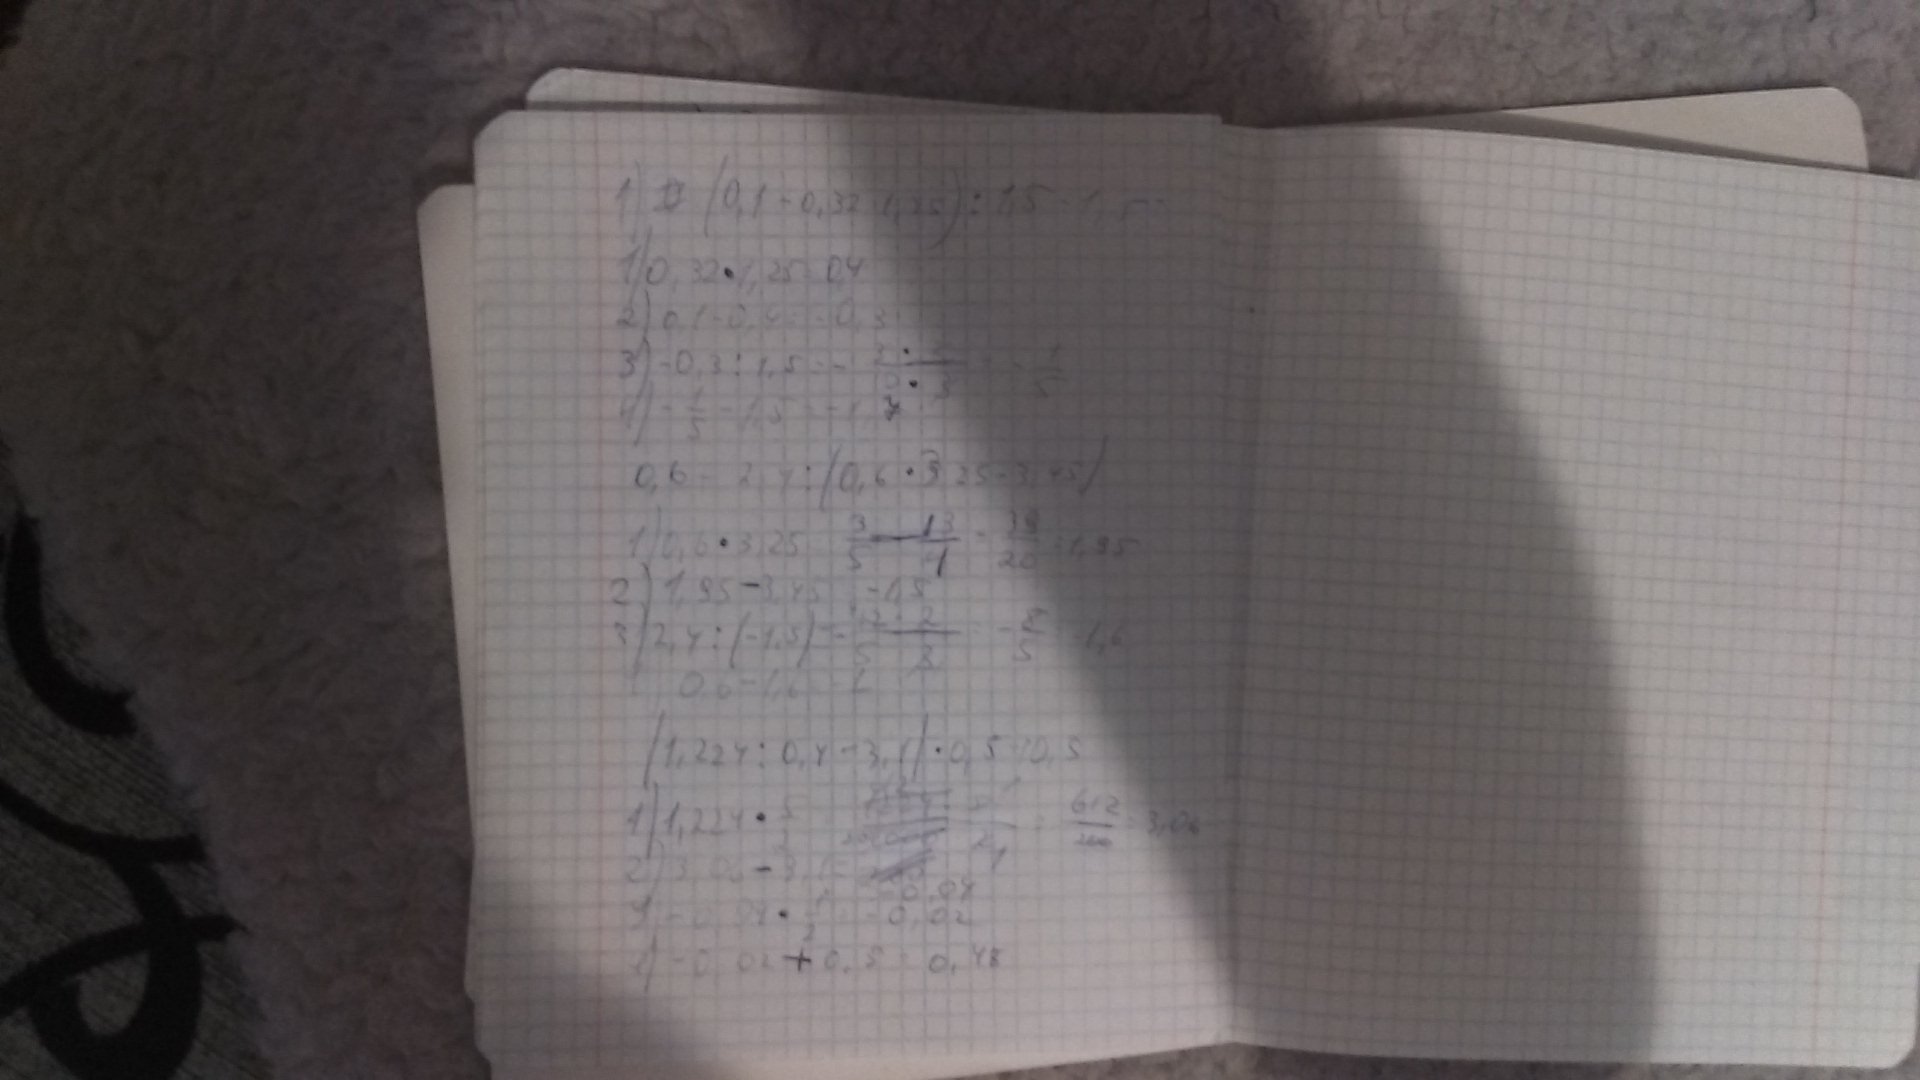 1) (0,1 - 0,32 · 1,25) : 1,5 - 1,5 =
1) 0,32 · 1,25 = 0,4
2) 0,1 - 0,4 = -0,3
3) -0,3 : 1,5 = - = - 1/5
4) - 1/5 - 1,5 = -1,7
0,6 - 2,4 : (0,6 · 3,25 - 3,45)
1) 0,6 · 3,25 = 3/5 · 13/4 = 39/20 = 1,95
2) 1,95 - 3,45 = -1,5
3) 2,4 : (-1,5) = - 12 · 2 / 5 · 3 = - 8/5 = 1,6
0,6 - 1,6 =
(1,224 : 0,4 - 3,1) · 0,5 + 0,5
1) 1,224 · 5/2 = 612/200 = 3,06
2) 3,06 - 3,1 = -0,04
3) -0,04 · 1/2 = -0,02
4) -0,02 + 0,5 = 0,48